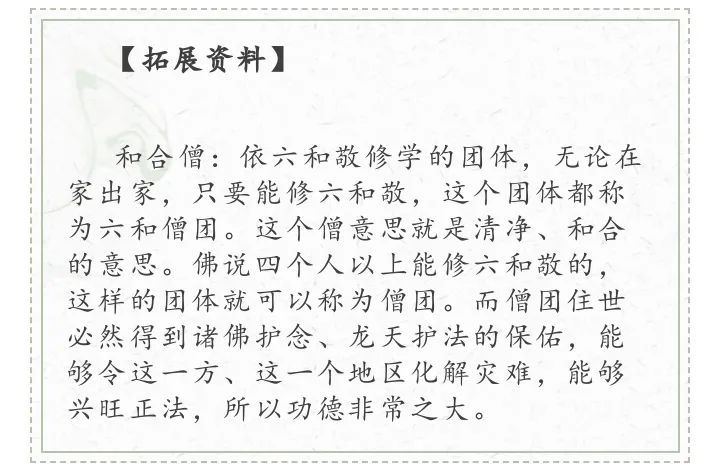 【拓展资料】
和合僧：依六和敬修学的团体，无论在
家出家，只要能修六和敬，这个团体都称
为六和僧团。这个僧意思就是清净、和合
的意思。佛说四个人以上能修六和敬的，
这样的团体就可以称为僧团。而僧团住世
必然得到诸佛护念、龙天护法的保佑，能
够令这一方、这一个地区化解灾难，能够
兴旺正法，所以功德非常之大。